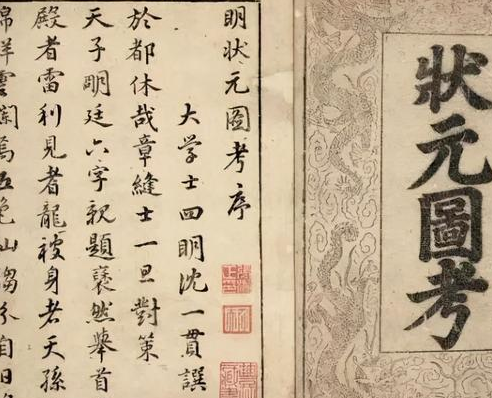 狀元圖考
明狀元圖考序
大学士四明沈一貫譔
於都休哉章縫士一旦對策
天子明廷六字親題褎然舉首
殿者雷利見者龍被身者天孫
錦祥雲闕爲五色山蒭